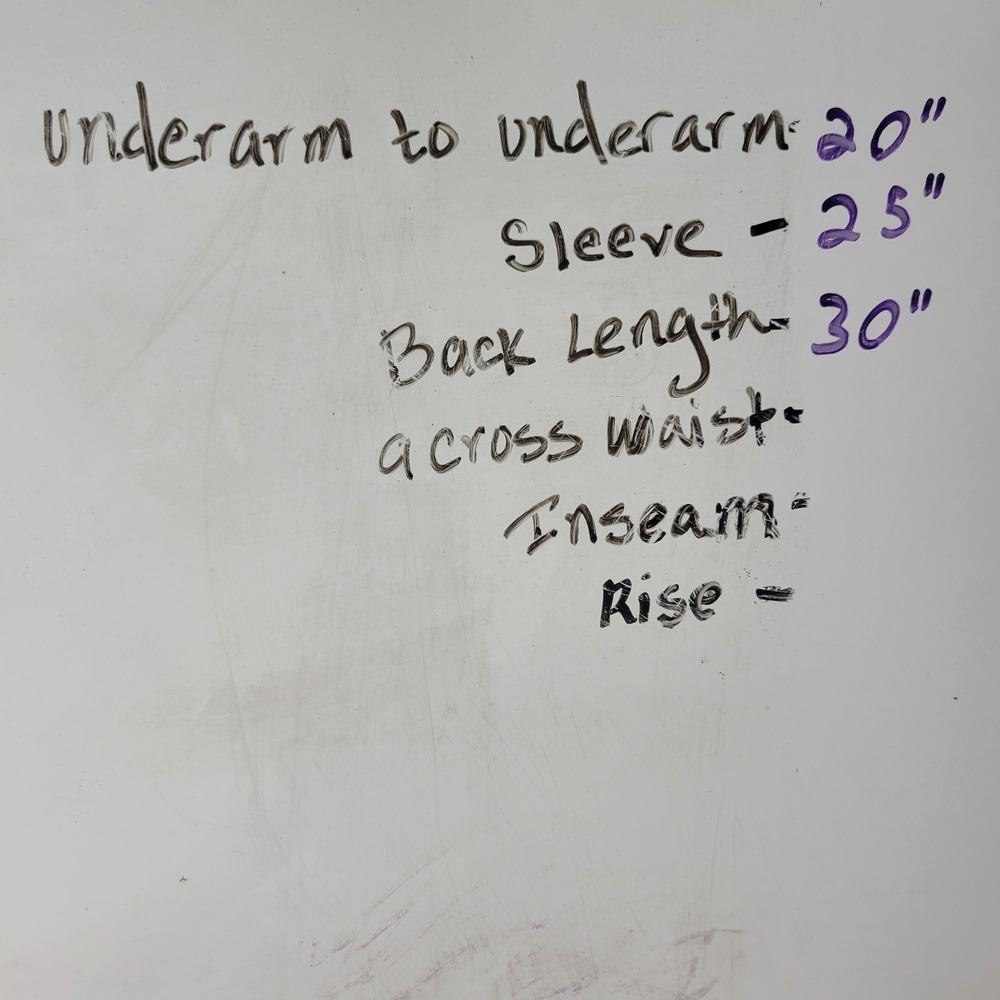 underarm to underarm- 20"
Sleeve - 25"
Back Length- 30"
across waist-
Inseam-
Rise -